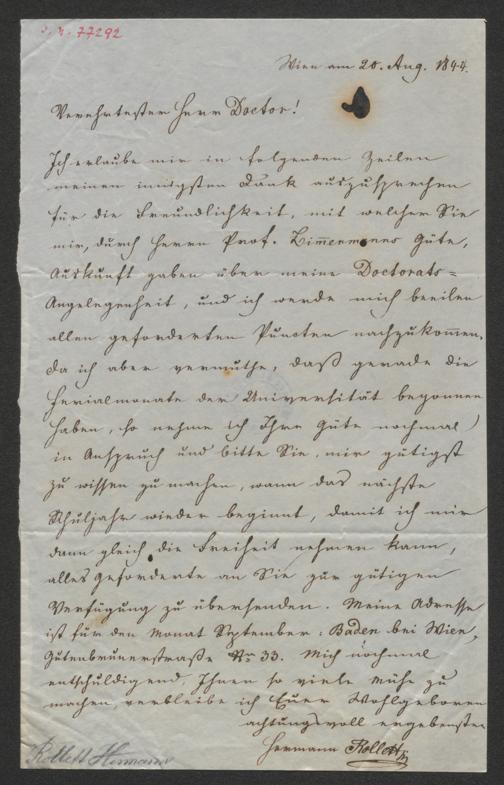 I. N. 77292
Wien am 20. Aug. 1844.
Verehrtester Herr Doctor!
Ich erlaube mir in folgenden Zeilen
meinen innigsten Dank auszusprechen
für die Freundlichkeit, mit welcher Sie
mir, durch Herrn Prof. Zim̅ermanns Güte,
Auskunft gaben über meine Doctorats-
Angelegenheit, und ich werde mich beeilen
allen geforderten Puncten nachzukom̅en.
Da ich aber vermuthe, daß gerade die
Ferialmonate der Universität begonnen
haben, so nehme ich Ihre Güte nochmal
in Anspruch und bitte Sie, mir gütigst
zu wissen zu machen, wann das nächste
Schuljahr wieder beginnt, damit ich mir
dann gleich die Freiheit nehmen kann,
alles Geforderte an Sie zur gütigen
Verfügung zu übersenden. Meine Adresse
ist für den Monat September: Baden bei Wien,
Gutenbrunerstraße No 33. Mich nochmal
entschuldigend, Ihnen so viele Mühe zu
machen, verbleibe ich Euer Wohlgeboren
achtungsvoll ergebenster
Hermann Rollett
Rollett Hermann